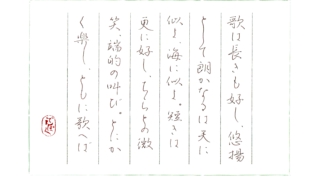 歌は長きも好し、悠揚
として朗かなるは天に
似よ、海に似よ。短きは
更に好し、ちらとの微
笑、端的の叫び。とにか
く楽し、ともに歌へば